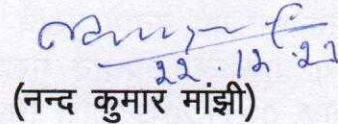 22.12.22
(नन्द कुमार मांझी)